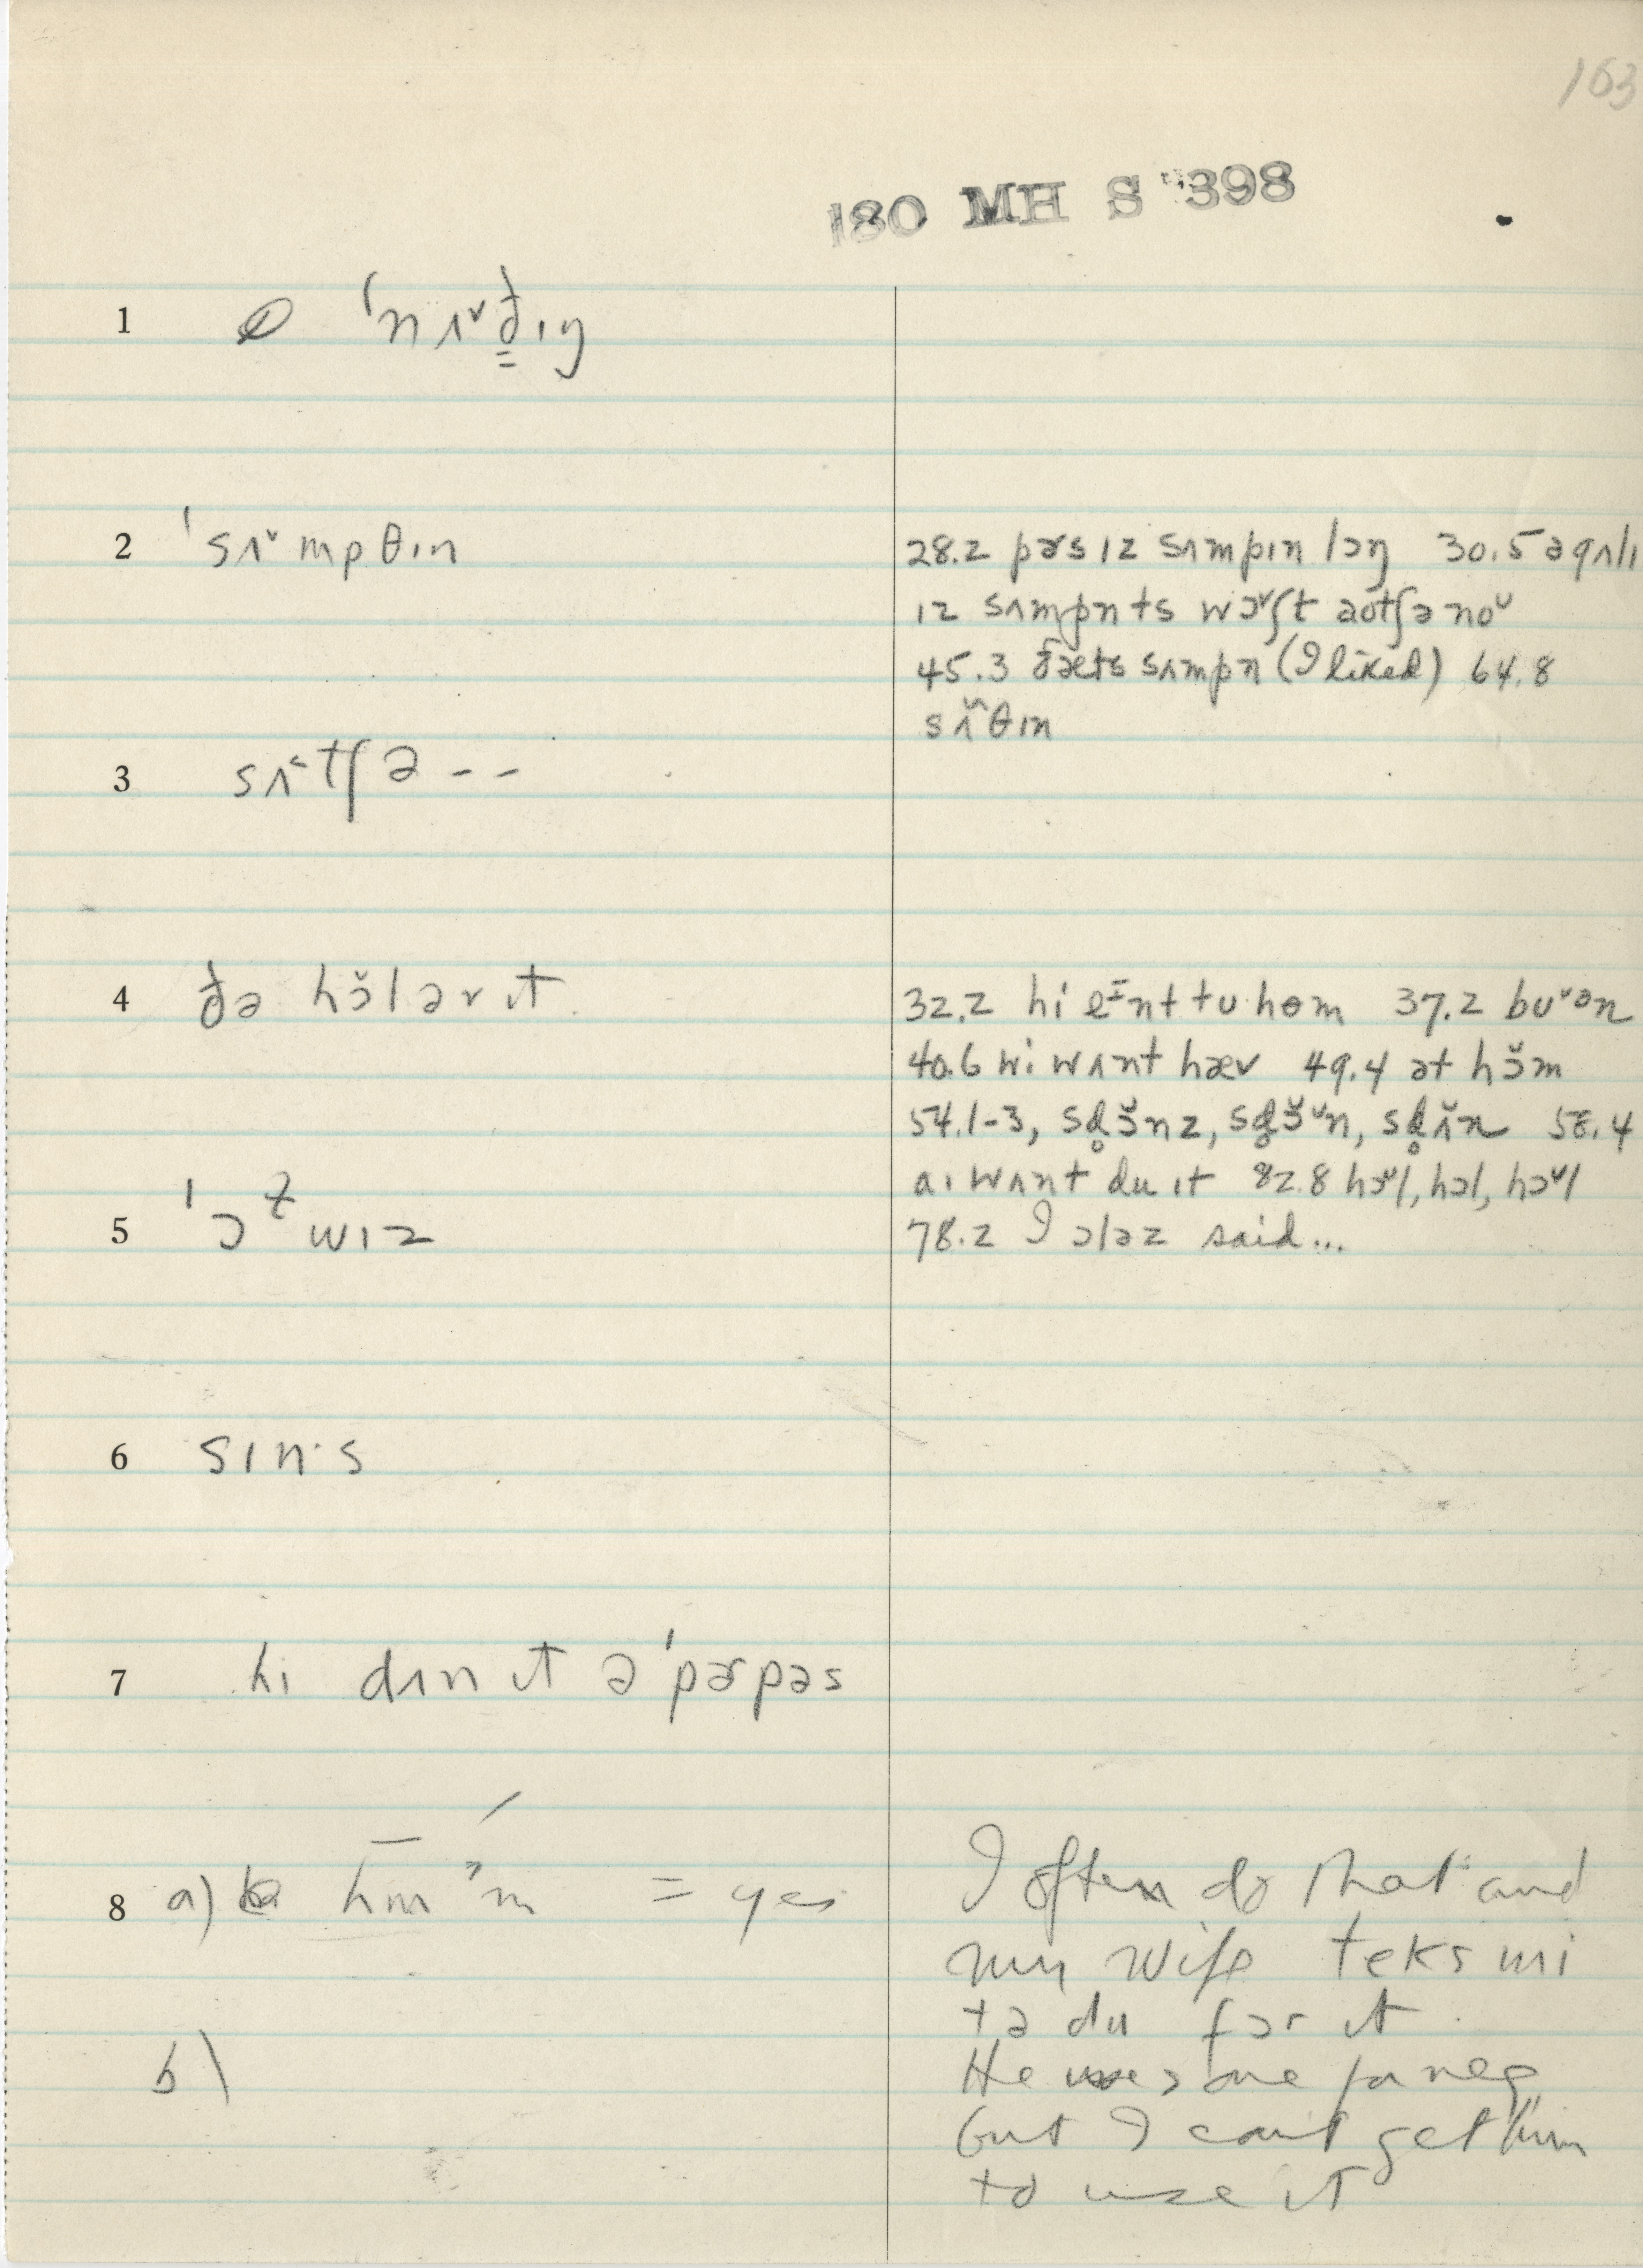 163
180 MH S 398
1 'nʌ˅ð̳ɪŋ
2 'sʌ˅mpθɪn
28.2 pɚs ɪz sʌmpɪn lɔŋ 30.5 əgʌlɪ
ɪz sʌmpn ts wɔ˅ʃt aʊtʃə no˅
45.3 ðæts sʌmpn (I liked) 64.8
sʌ̃˅θɪn
3 sʌ˂tʃ ə - -
4 ðə hɔ̆l əv ɪt
32.2 hi eɪnt tu hom 37.2
40.6 wi wʌnt hæv 49.4 ət hɔ̆m
54.1-3, sd̥ɔ̆nz, sd̥ɔ̆˅n, sd̥ʌ̆n 58.4
aɪ wʌnt du ɪt 82.8 hɔ˅l, hɔl, hɔ˅l
5 'ɔɫwɪz
78.2 I ɔləz said...
6 sɪn·s
7 hi dʌn ɪt ə'pɚpəs
8 a) hm ˀm = yes
I often do that and
my wife teks mi
tə du fɔr ɪt.
b)
He uses one for neg
but I can't get him
to use it